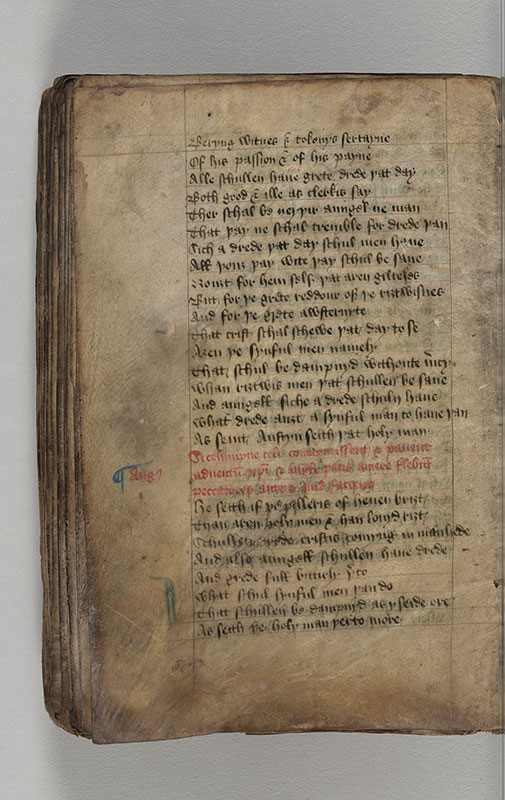 Beryng witnes & tokonys sertayne
Of his passion & of his payne
Alle schullen haue grete drede þat day
Both good & ille as clerkis say
Ther schal be neyþir aungel ne man
That þay ne schal tremble for drede þan
Sich a drede þat day schul men haue
All þouȝ þay wite þay schul be saue
Nouȝt for hem self þat aren gilteles
But for þe grete reddour off þe riȝtwisnes
And for þe grete awsternyte
That crist schal schewe þat day to se
Aȝen þe synful men namely
That schul be dampnyd withoute m̄cy
Whan riȝtwis men þat schullen be saue
And aungell siche a drede schuln haue
What drede auȝt a synful man to haue þan
As seint Austyn seith þat holy man
Si columpne celi contremiscent & pauent
¶ Aug9 aduentū xp̄i & angli pacis amare flebūt
peccatores autem quid facient
He seith if þe pilleris of heuen briȝt
Than aren holy men & han louyd riȝt
Schullen drede cristis comyng in manhede
And also aungell schullen haue drede
And grede full bitterly þ to
What schul synful men þan do
That schullen be dampnyd as y seide ore
As seith þe holy man þerto more